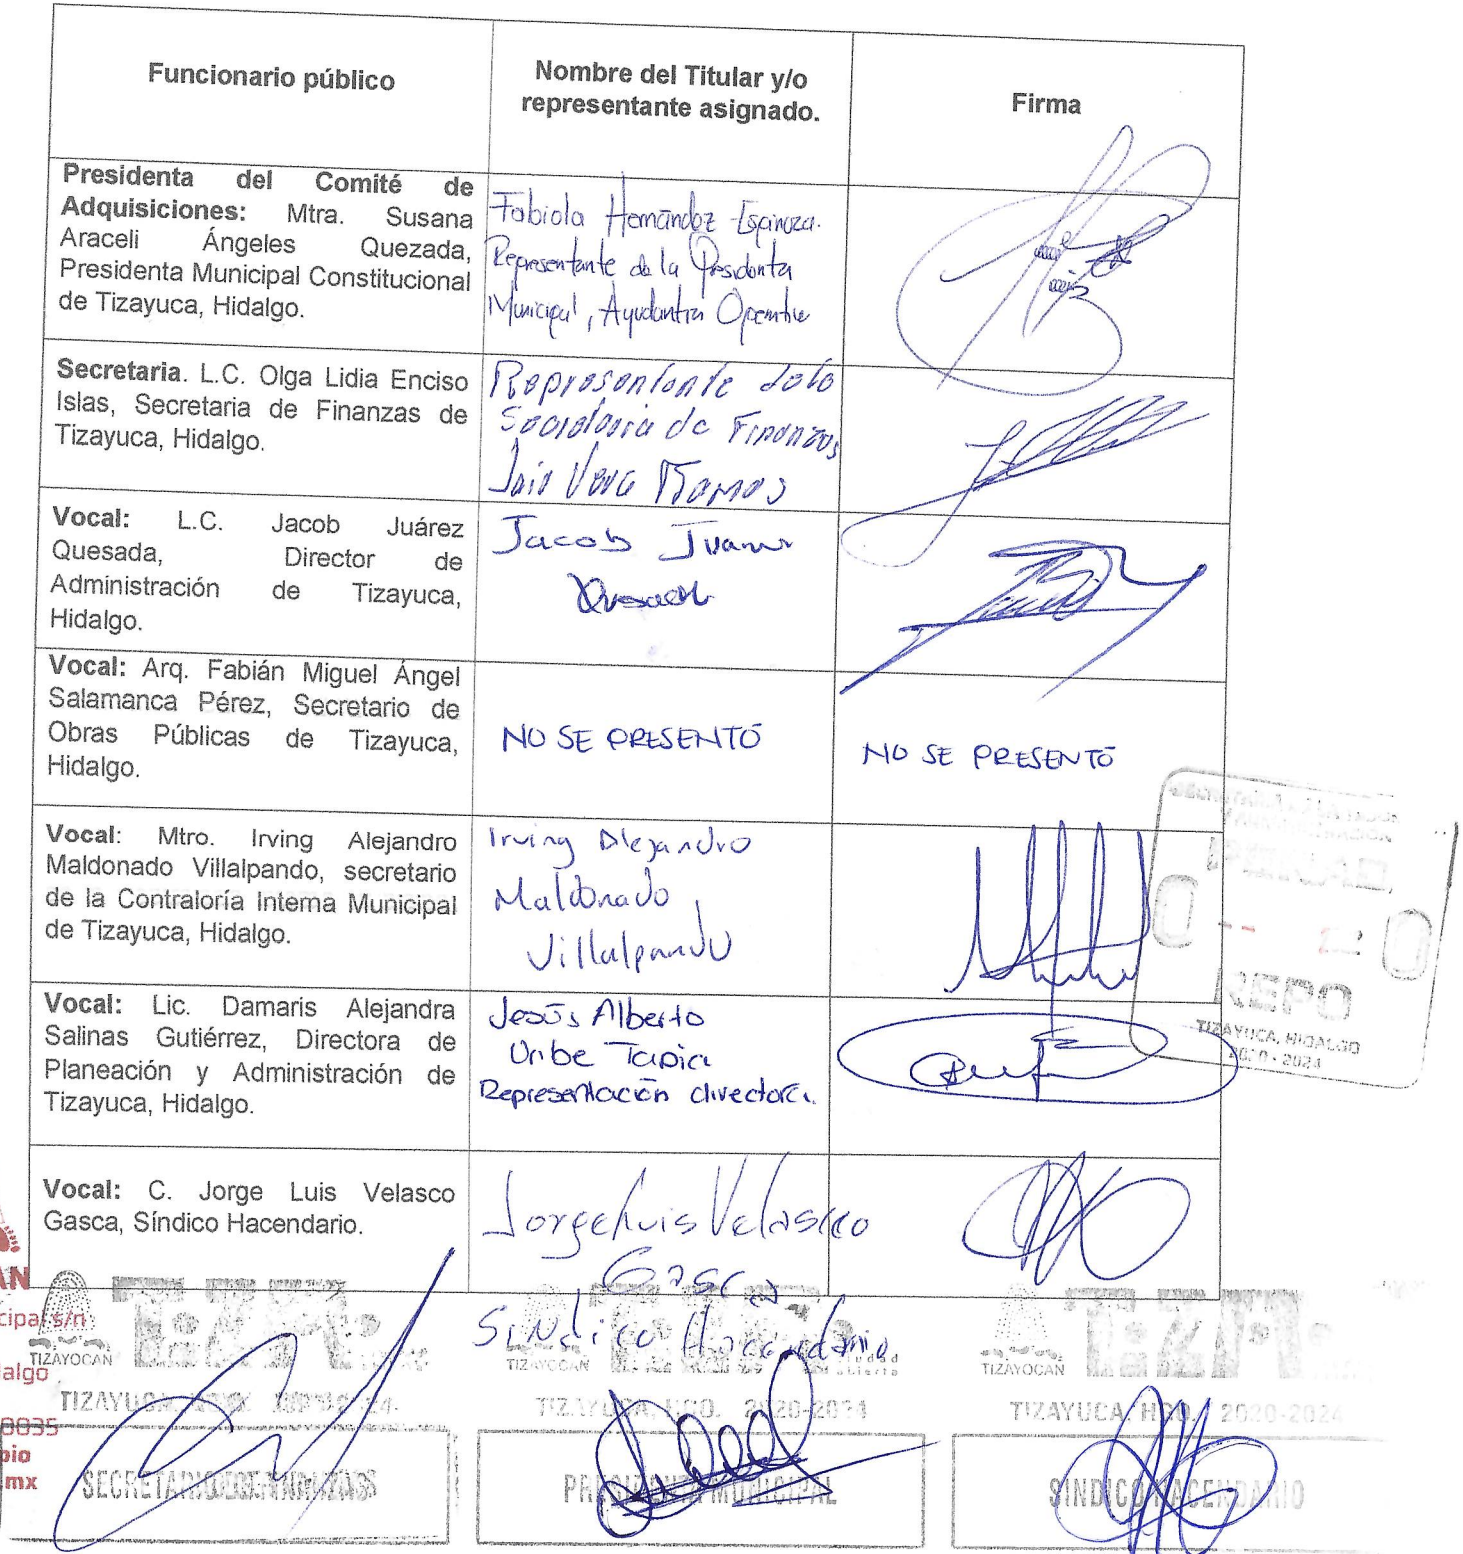 Funcionario público
Nombre del Titular y/o
representante asignado.
Firma
Presidenta del Comité de
Adquisiciones: Mtra. Susana
Araceli Ángeles Quezada,
Presidenta Municipal Constitucional
de Tizayuca, Hidalgo.
Fabiola Hernández Espinoza.
Representante de la Presidenta
Municipal, Ayudantía Operativa
Secretaria. L.C. Olga Lidia Enciso
Islas, Secretaria de Finanzas de
Tizayuca, Hidalgo.
Representante de la
Secretaria de Finanzas
Jair Vera Ramos
Vocal: L.C. Jacob Juárez
Quesada, Director de
Administración de Tizayuca,
Hidalgo.
Jacob Juarez
Quesada
Vocal: Arq. Fabián Miguel Ángel
Salamanca Pérez, Secretario de
Obras Públicas de Tizayuca,
Hidalgo.
NO SE PRESENTÓ
NO SE PRESENTÓ
Vocal: Mtro. Irving Alejandro
Maldonado Villalpando, secretario
de la Contraloría Interna Municipal
de Tizayuca, Hidalgo.
Irving Alejandro
Maldonado
Villalpando
TIZAYUCA, HIDALGO
2020 - 2024
Vocal: Lic. Damaris Alejandra
Salinas Gutiérrez, Directora de
Planeación y Administración de
Tizayuca, Hidalgo.
Jesús Alberto
Uribe Tapia
Representación directora.
Vocal: C. Jorge Luis Velasco
Gasca, Síndico Hacendario.
Jorge Luis Velasco
Gasca
Síndico Hacendario
AN
cipal s/n
algo
0035
pio
mx
TIZAYOCAN
TIZAYUCA
SECRETARIO DE FINANZAS
TIZAYOCAN
TIZAYUCA, HGO. 2020-2024
PRESIDENTA MUNICIPAL
TIZAYOCAN
TIZAYUCA, HGO. 2020-2024
SINDICO HACENDARIO